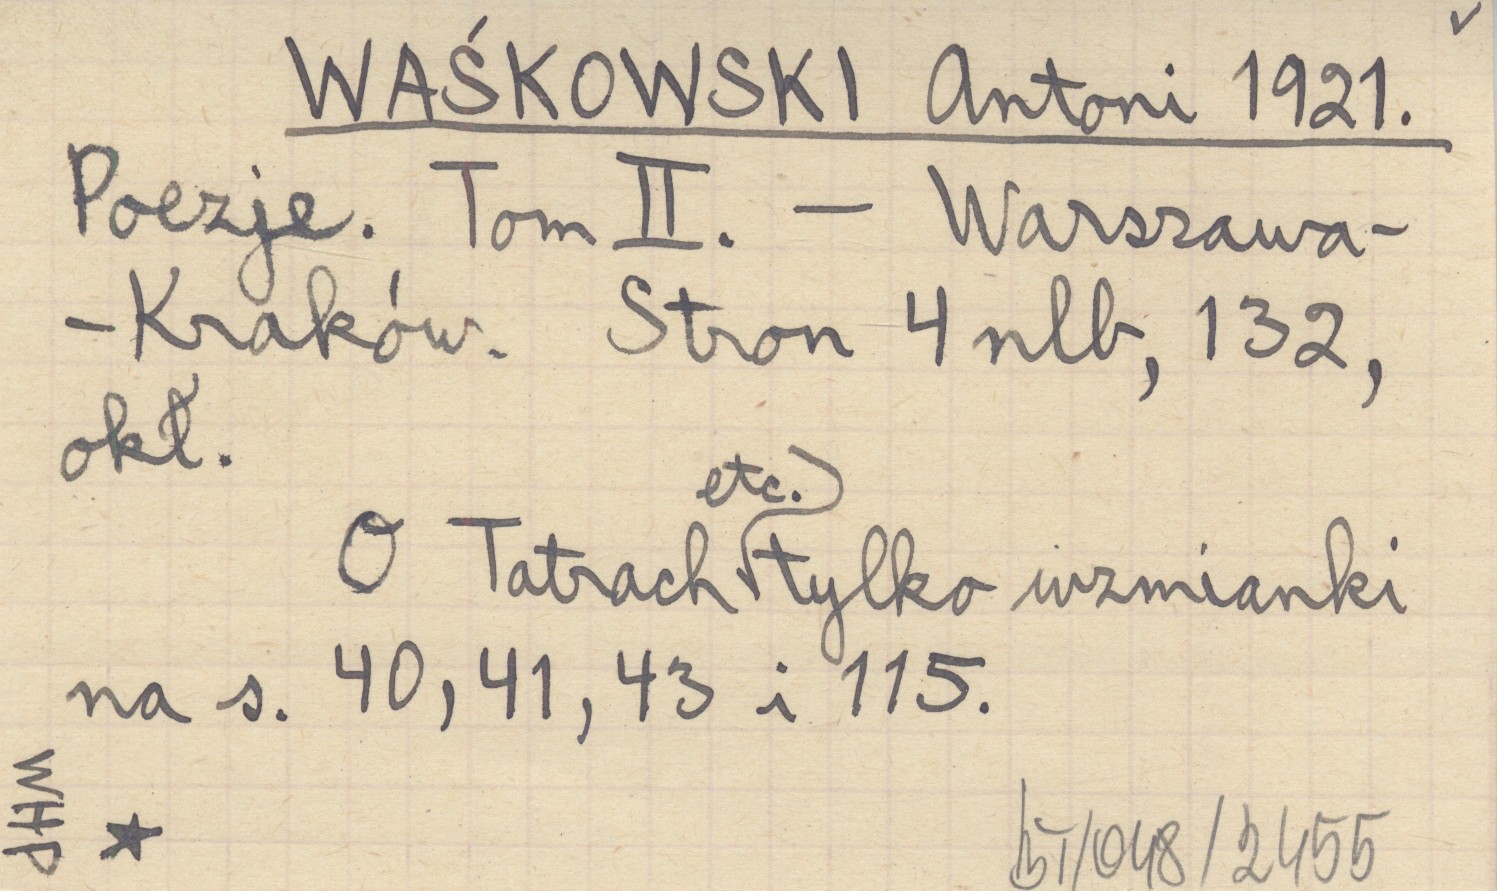 WAŚKOWSKI Antoni 1921.
Poezje. Tom II. – Warszawa-
-Kraków. Stron 4 nlb, 132,
okł.
etc.
O Tatrach tylko wzmianki
na s. 40, 41, 43 i 115.
WHP
BT/048/2455